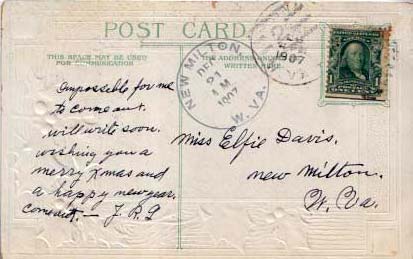 POST CARD.
THIS SPACE MAY BE USED
FOR COMMUNICATION
THE ADDRESS ONLY
WRITTEN HERE
NEW MILTON
DEC
21
AM
1907
W. VA.
1907
1
Impossible for me
to come out.
will write soon.
wishing you a
merry Xmas and
a happy new year.
come out. — J. R. G
Miss Elfie Davis.
new Milton.
W. Va.